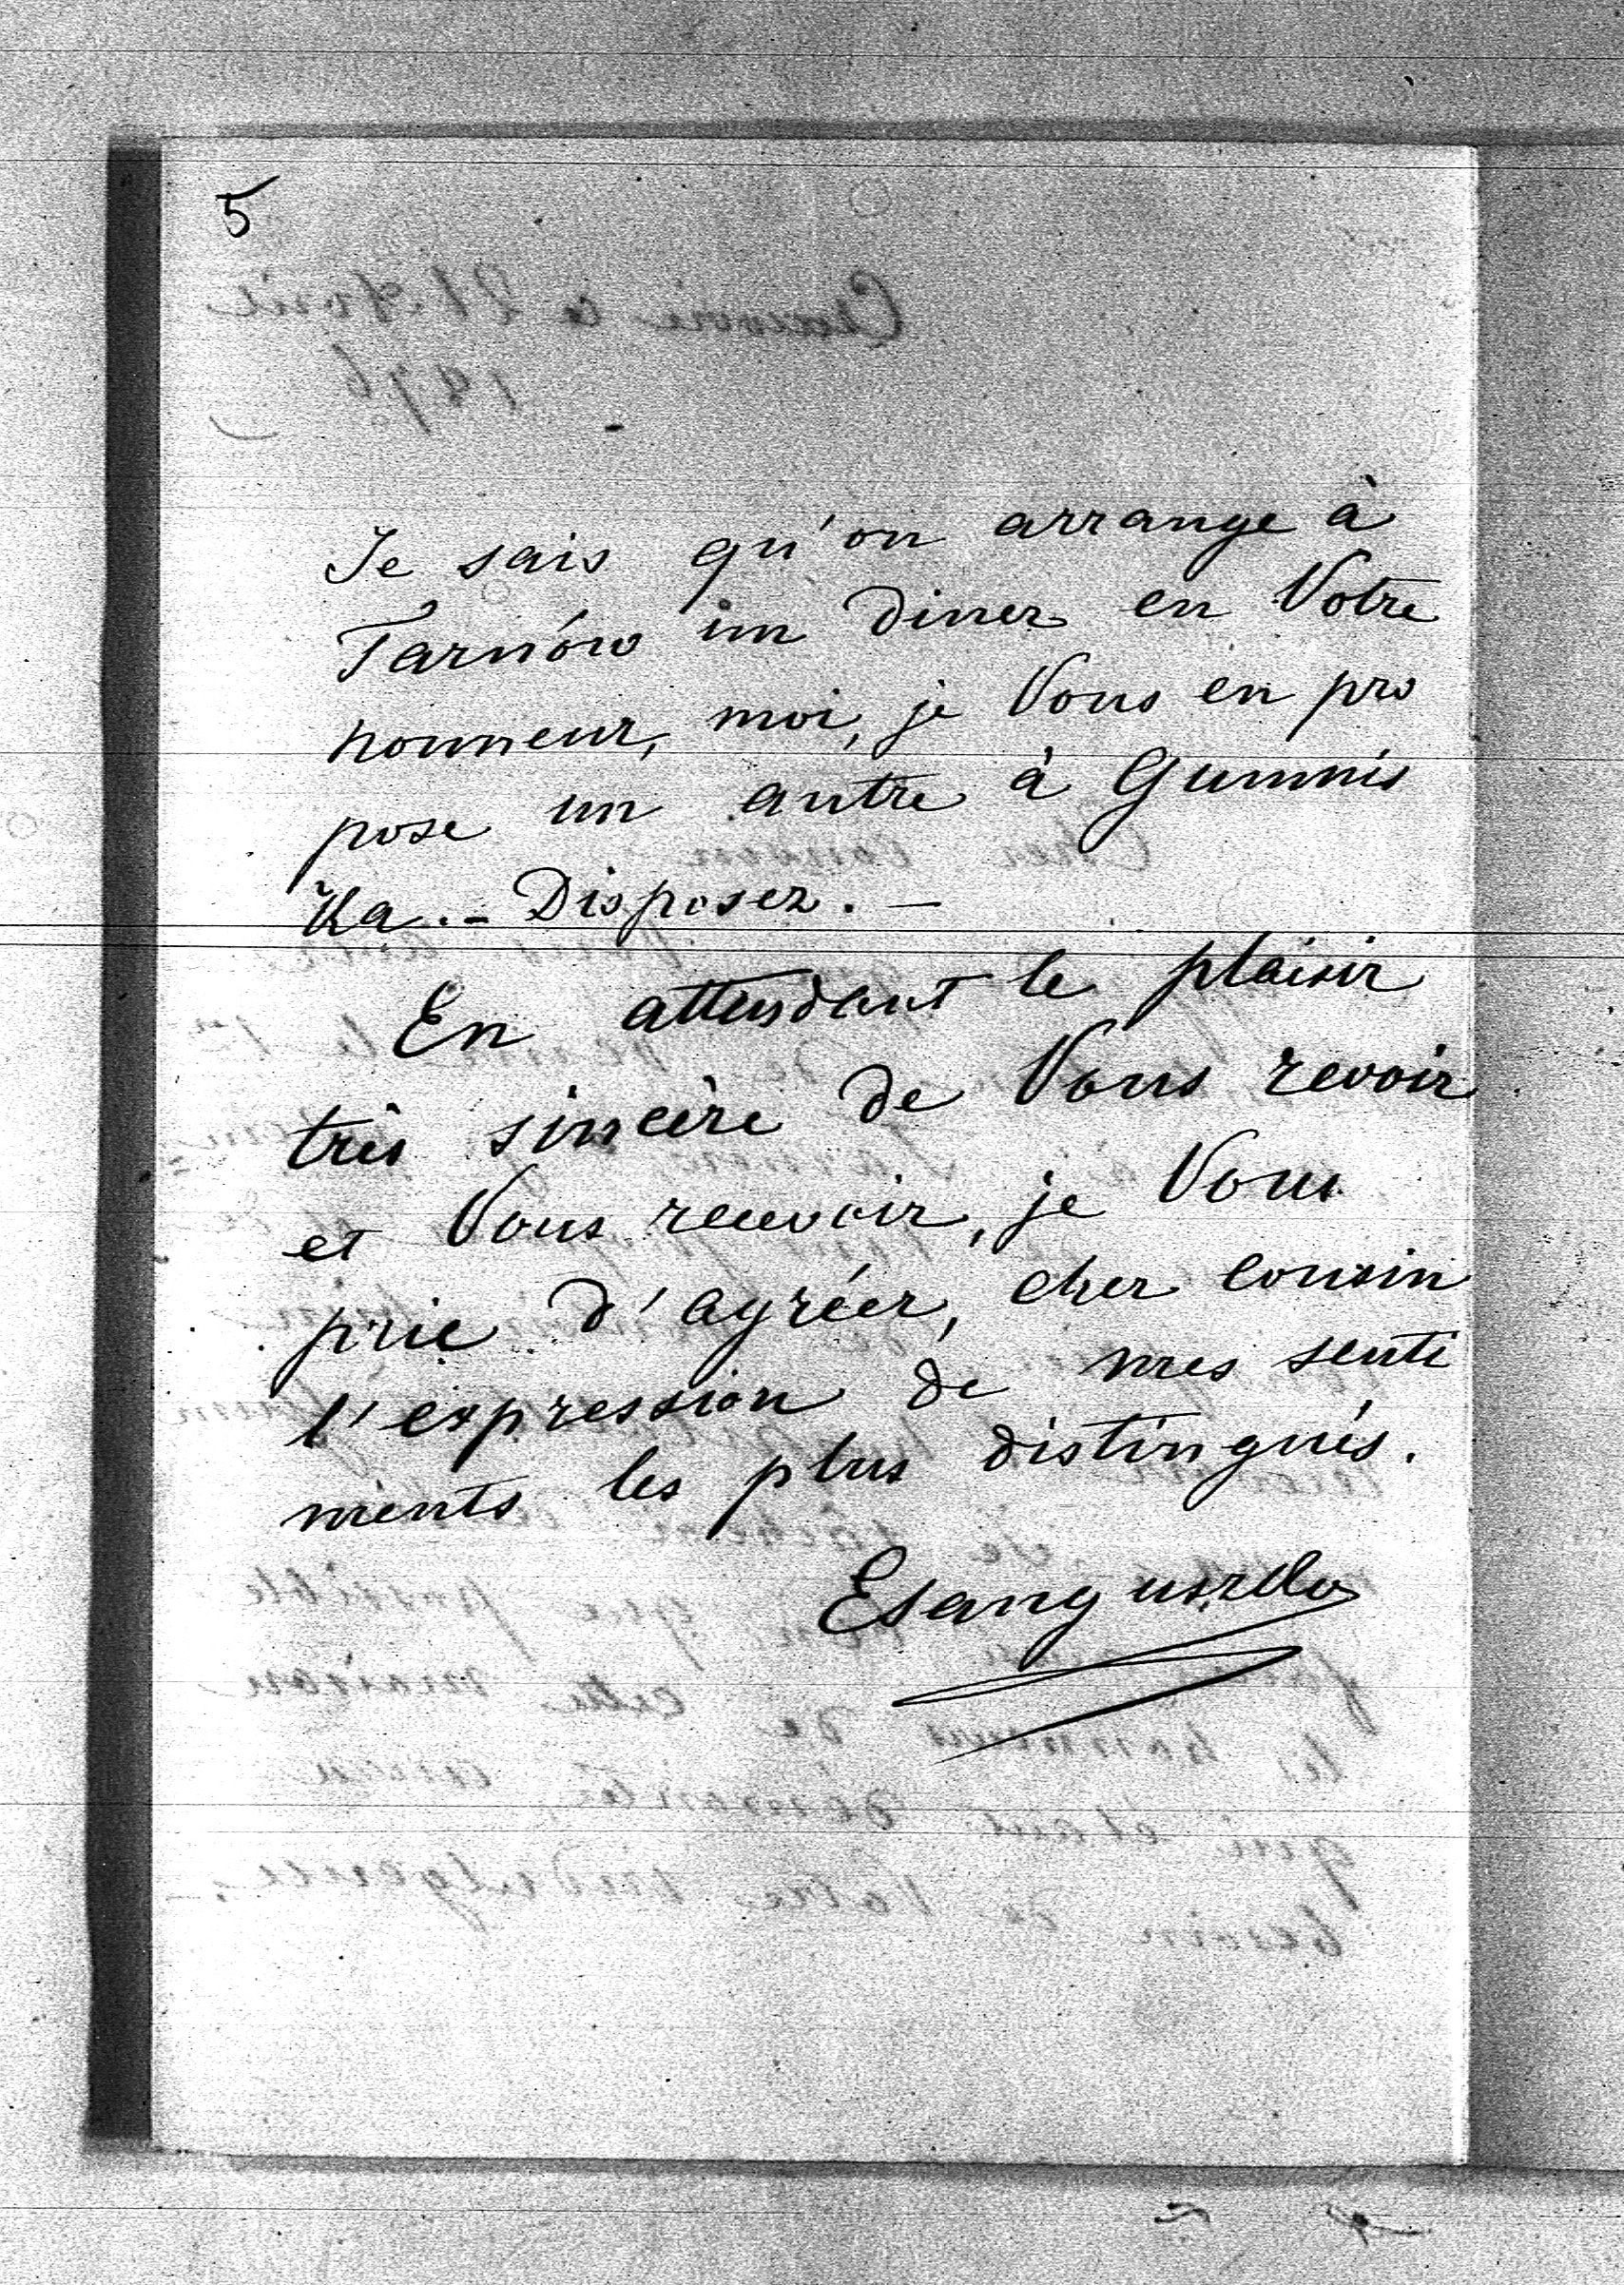 5
Je sais qu'on arrange à
Tarnów un diner en Votre
honneur, moi, je Vous en pro
pose un autre à Gumnis
Ka. - Disposez. -
En attendant le plaisir
très sincère de Vous revoir
et Vous recevoir, je Vous
prie d'agréer, cher cousin
l'expression de mes senti
ments les plus distingués.
ESanguszko